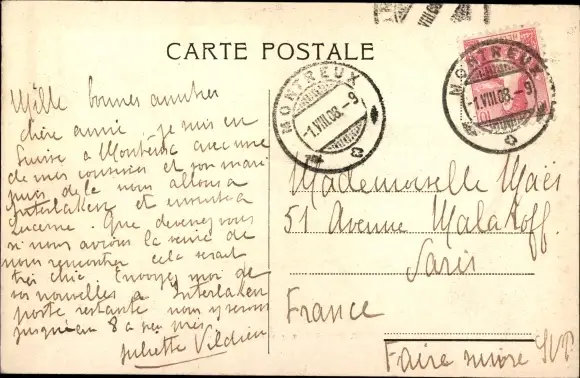 CARTE POSTALE
VIII.08
MONTREUX
-1.VIII.08.-9
MONTREUX
-1.VIII.08.-9
Mille bonnes amitiés
chère amie. je suis en
Suisse a Montreux avec une
de mes cousines et son mari
puis de la nous allons a
Interlaken et ensuite a
Lucerne. Que devenez vous
si nous avions la veine de
nous rencontrer cela serait
très chic. Envoyez moi de
vos nouvelles a Interlaken
poste restante nous y serons
jusqu'au 8 a peu près
Juliette
Mademoiselle Maës
51 Avenue Malakoff.
Paris
France
Faire suivre SVP